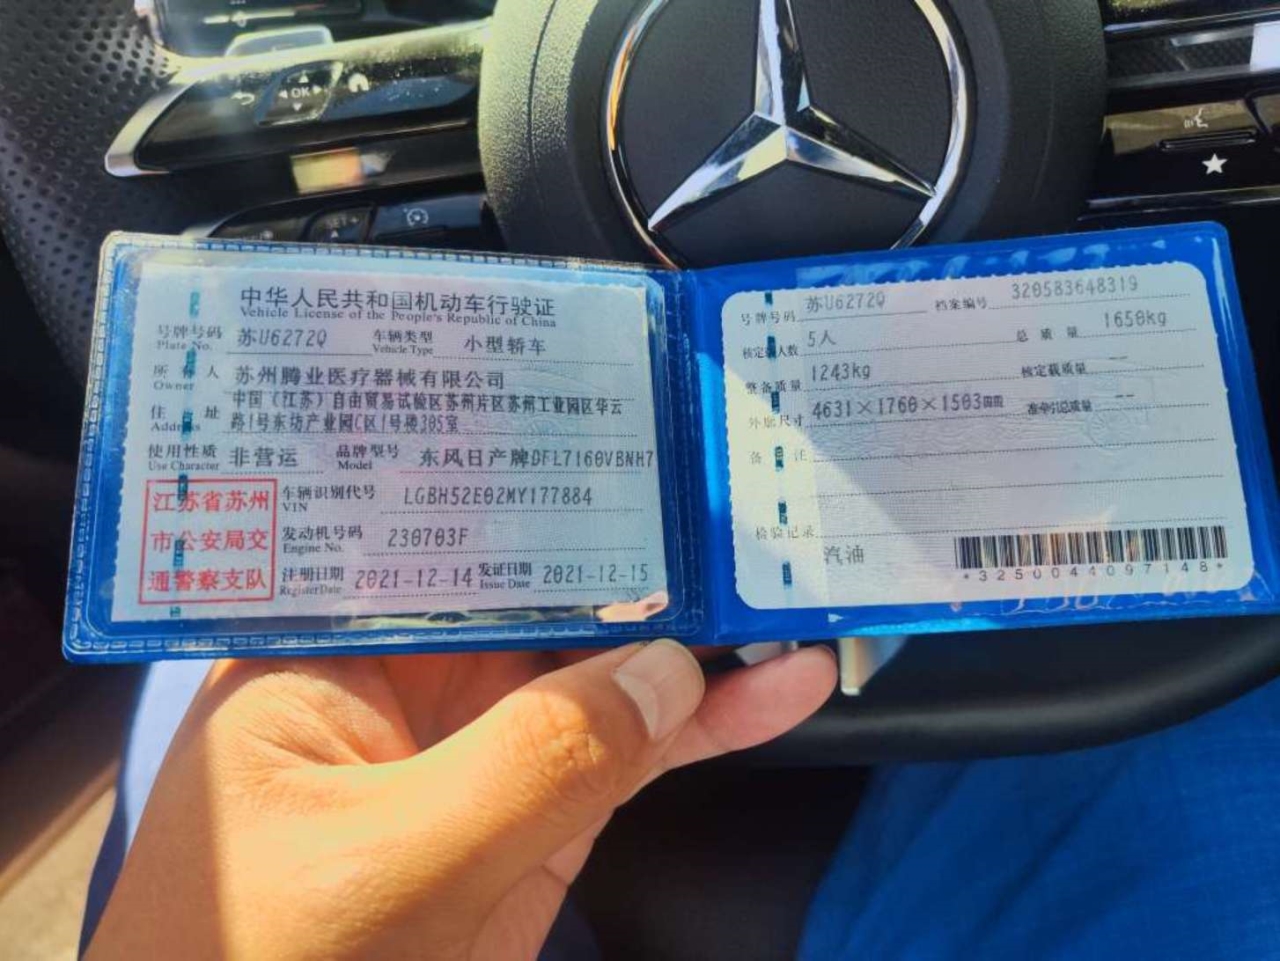 OK
中华人民共和国机动车行驶证
Vehicle License of the People's Republic of China
号牌号码 苏U6272Q 车辆类型 小型轿车
Plate No. Vehicle Type
所有人 苏州腾业医疗器械有限公司
Owner
中国（江苏）自由贸易试验区苏州片区苏州工业园区华云
住址 路1号东坊产业园C区1号楼305室
Address
使用性质 非营运 品牌型号 东风日产牌DFL7160VBNH7
Use Character Model
江苏省苏州
市公安局交
通警察支队
车辆识别代号 LGBH52E02MY177884
VIN
发动机号码 230703F
Engine No.
注册日期 2021-12-14 发证日期 2021-12-15
Register Date Issue Date
号牌号码 苏U6272Q 档案编号 320583648319
核定载人数 5人 总质量 1650kg
整备质量 1243kg 核定载质量 --
外廓尺寸 4631×1760×1503mm 准牵引总质量 --
备注
检验记录
汽油
*3250044097148*